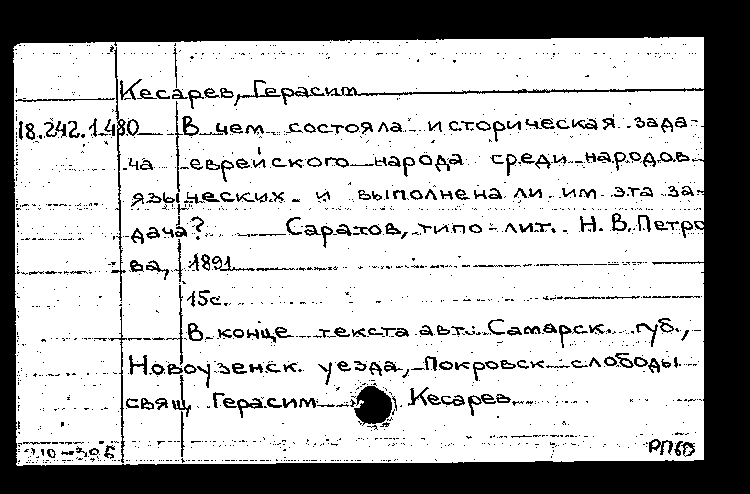 Кесарев, Герасим
18.242.1.480 В чем состояла историческая зада-
ча еврейского народа среди народов
языческих и выполнена ли им эта за-
дача? Саратов, типо-лит. Н.В.Петро
ва, 1891
15с.
В конце текста авт.: Самарск. губ.,
Новоузенск. уезда, Покровск. слободы
свящ. Герасим Кесарев.